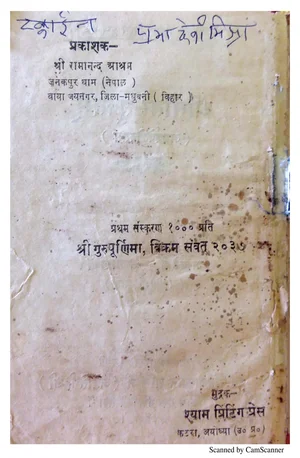 प्रकाशक—
श्री रामानन्द आश्रम
जनकपुर धाम (नेपाल)
वाया जयनगर, जिला-मधुवनी (बिहार)
प्रथम संस्करण १००० प्रति
श्री गुरुपूर्णिमा, विक्रम संवत् २०३७
मुद्रक—
श्याम प्रिंटिंग प्रेस
कटरा, अयोध्या (उ० प्र०)
Scanned by CamScanner